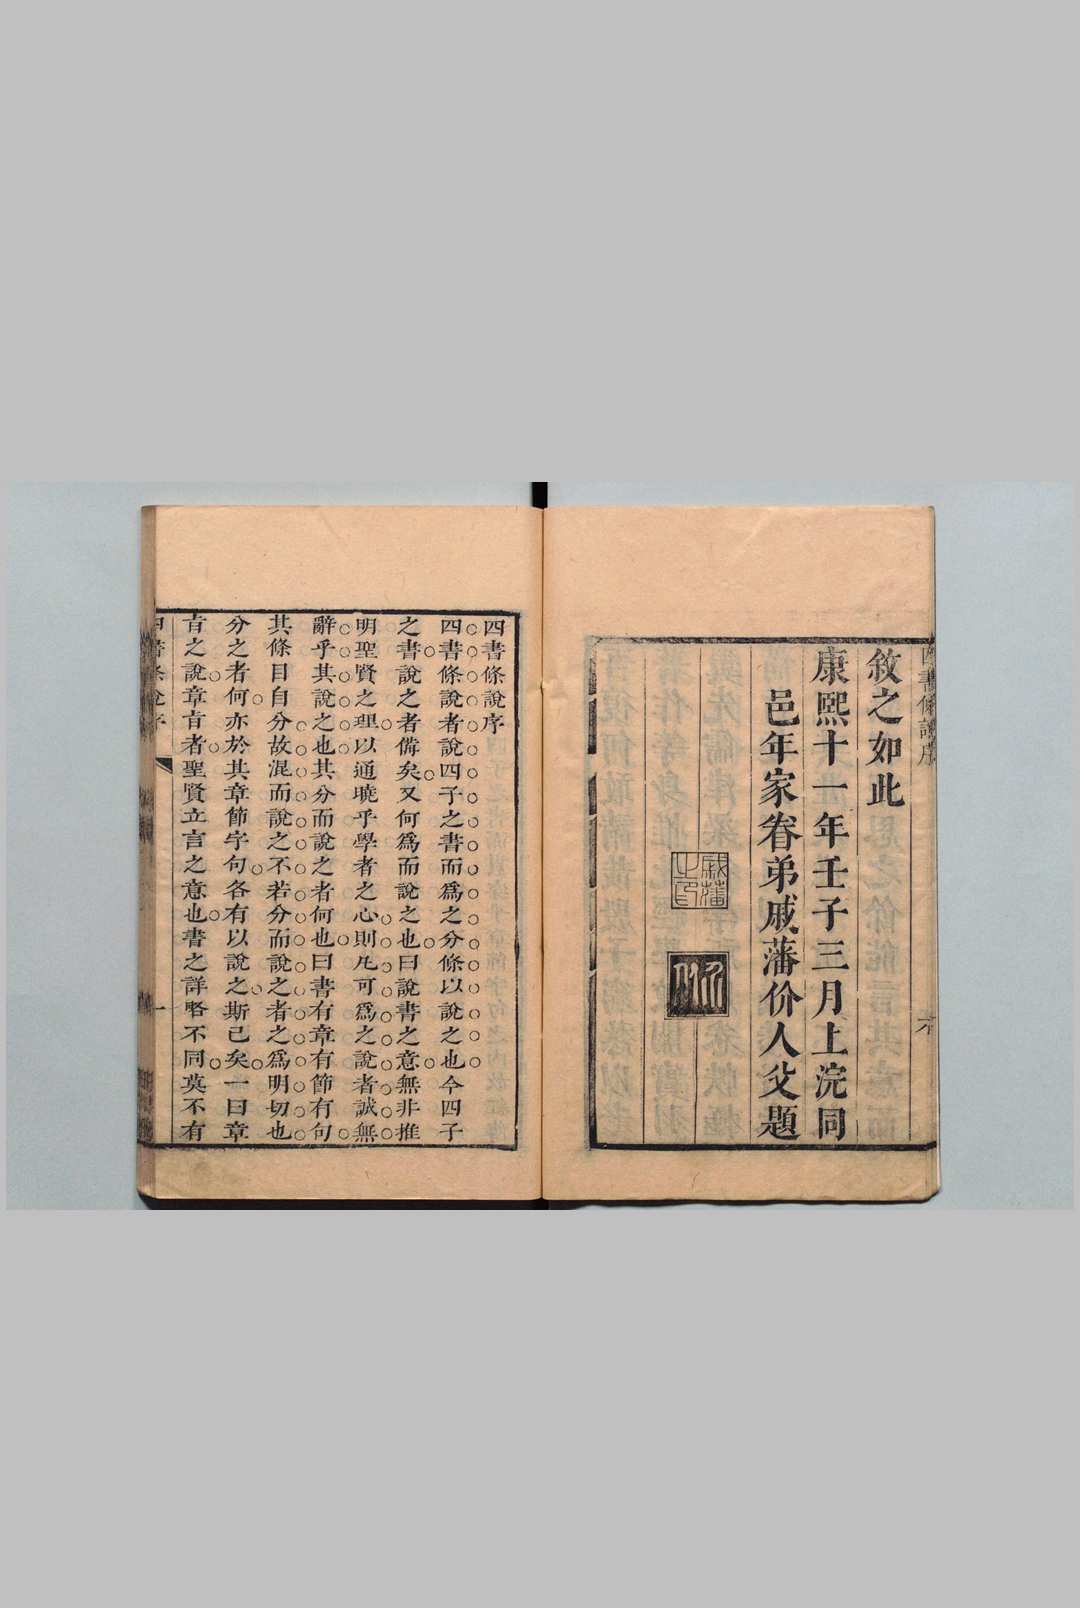 敘之如此
康熙十一年壬子三月上浣同
邑年家眷弟戚藩价人父題
戚藩之印
价人
四書條說序
四書條說者說四子之書而爲之分條以說之也今四子
之書說之者備矣又何爲而說之也曰說書之意無非推
明聖賢之理以通曉乎學者之心則凡可爲之說者誠無
辭乎其說之也其分而說之者何也曰書有章有節有句
其條目自分故混而說之不若分而說之者之爲明切也
分之者何亦於其章節字句各有以說之斯已矣一曰章
旨之說章旨者聖賢立言之意也書之詳略不同莫不有
四書條說序
一